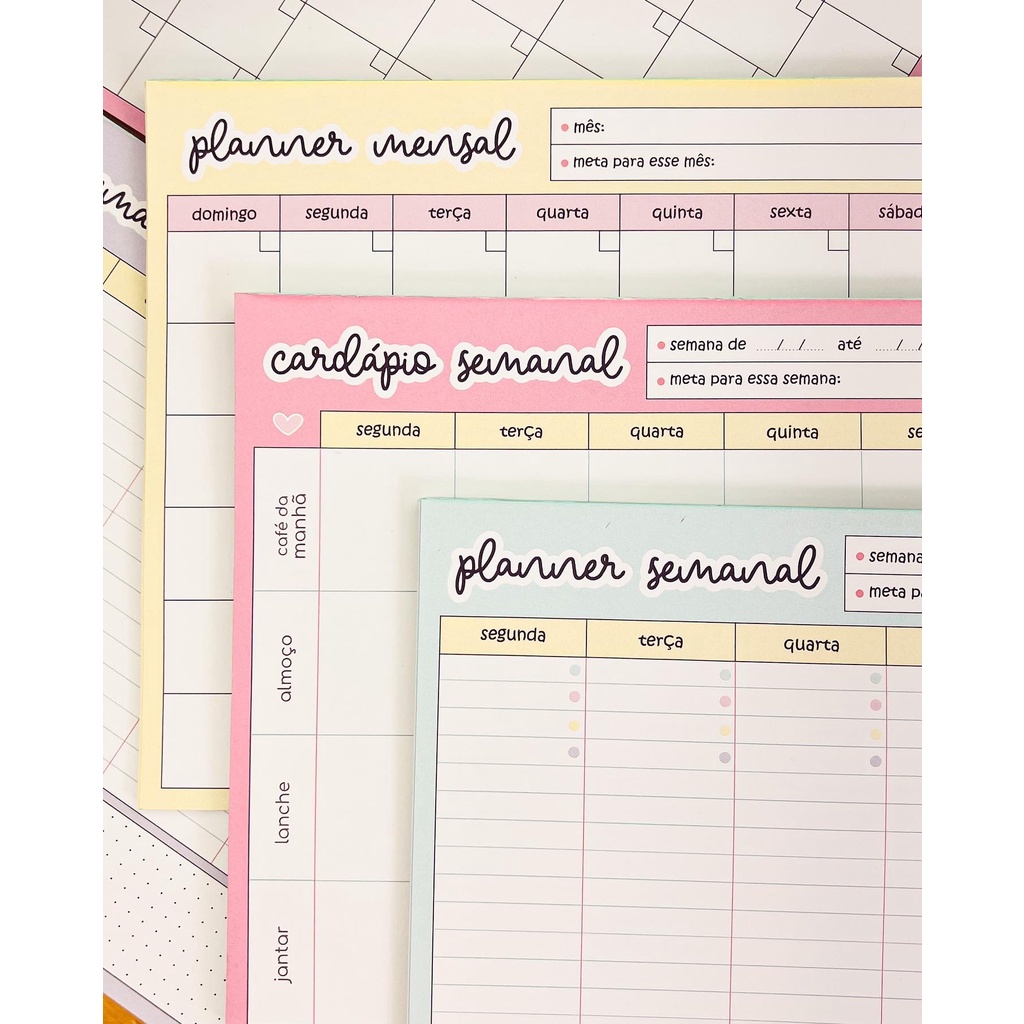 planner mensal
mês:
meta para esse mês:
domingo segunda terça quarta quinta sexta
cardápio semanal
semana de ...../...../..... até
meta para essa semana:
segunda terça quarta quinta
café da
manhã
almoço
lanche
jantar
planner semanal
semana
meta
segunda terça quarta